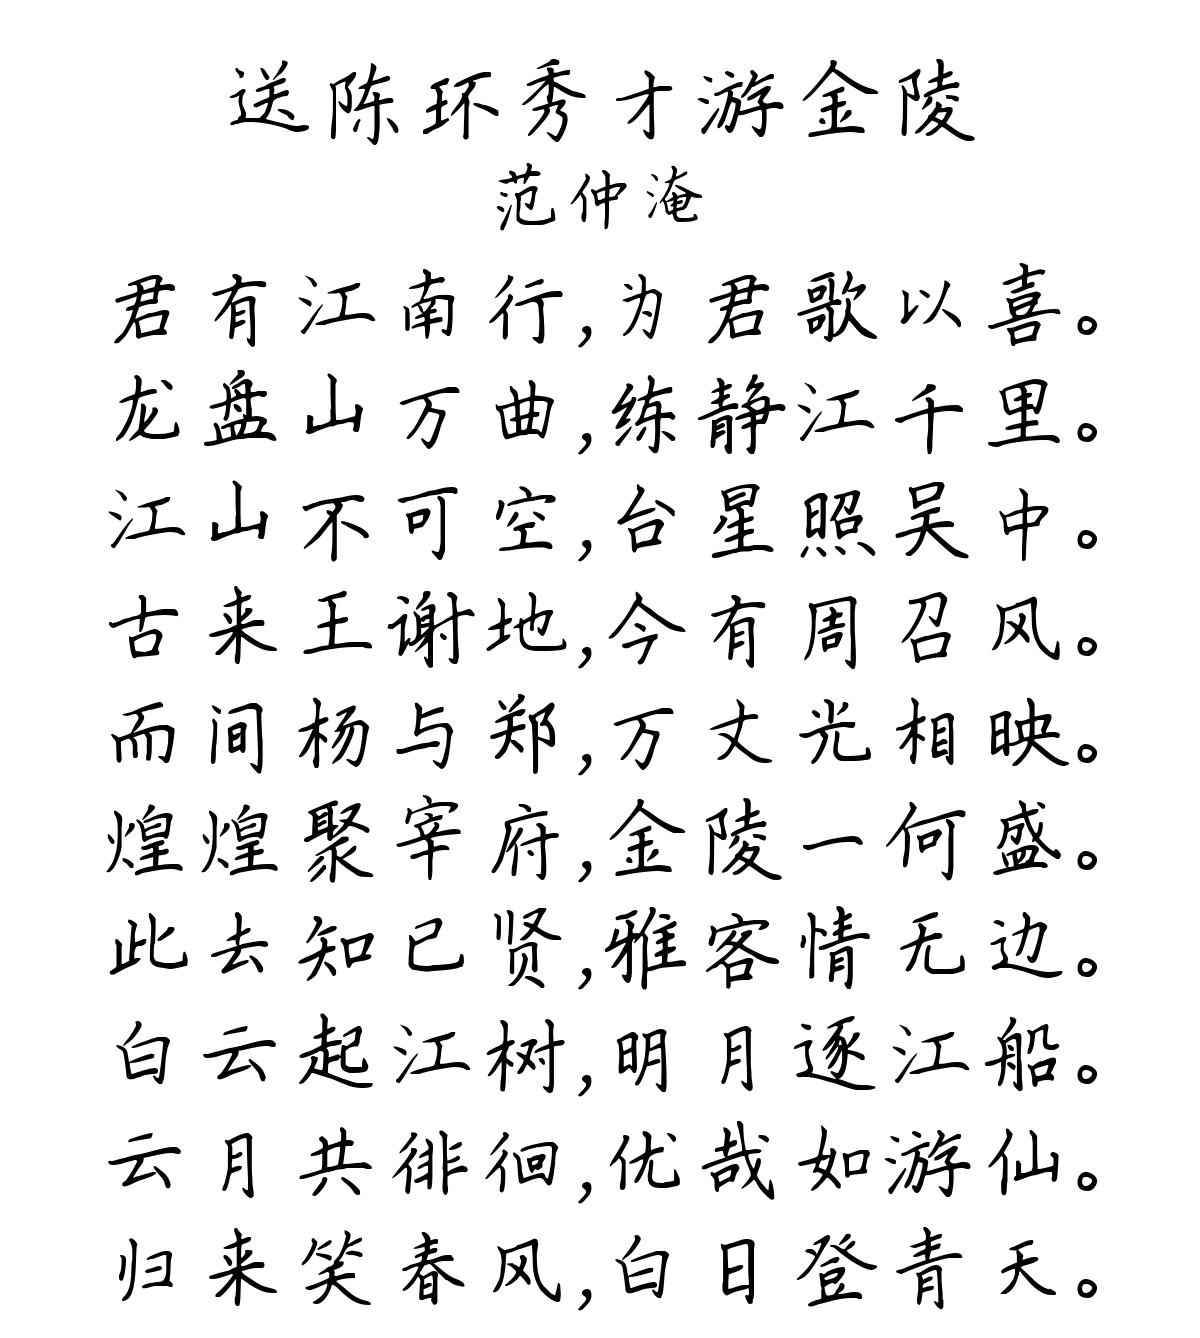 送陈环秀才游金陵
范仲淹
君有江南行,为君歌以喜。
龙盘山万曲,练静江千里。
江山不可空,台星照吴中。
古来王谢地,今有周召风。
而间杨与郑,万丈光相映。
煌煌聚宰府,金陵一何盛。
此去知己贤,雅客情无边。
白云起江树,明月逐江船。
云月共徘徊,优哉如游仙。
归来笑春风,白日登青天。